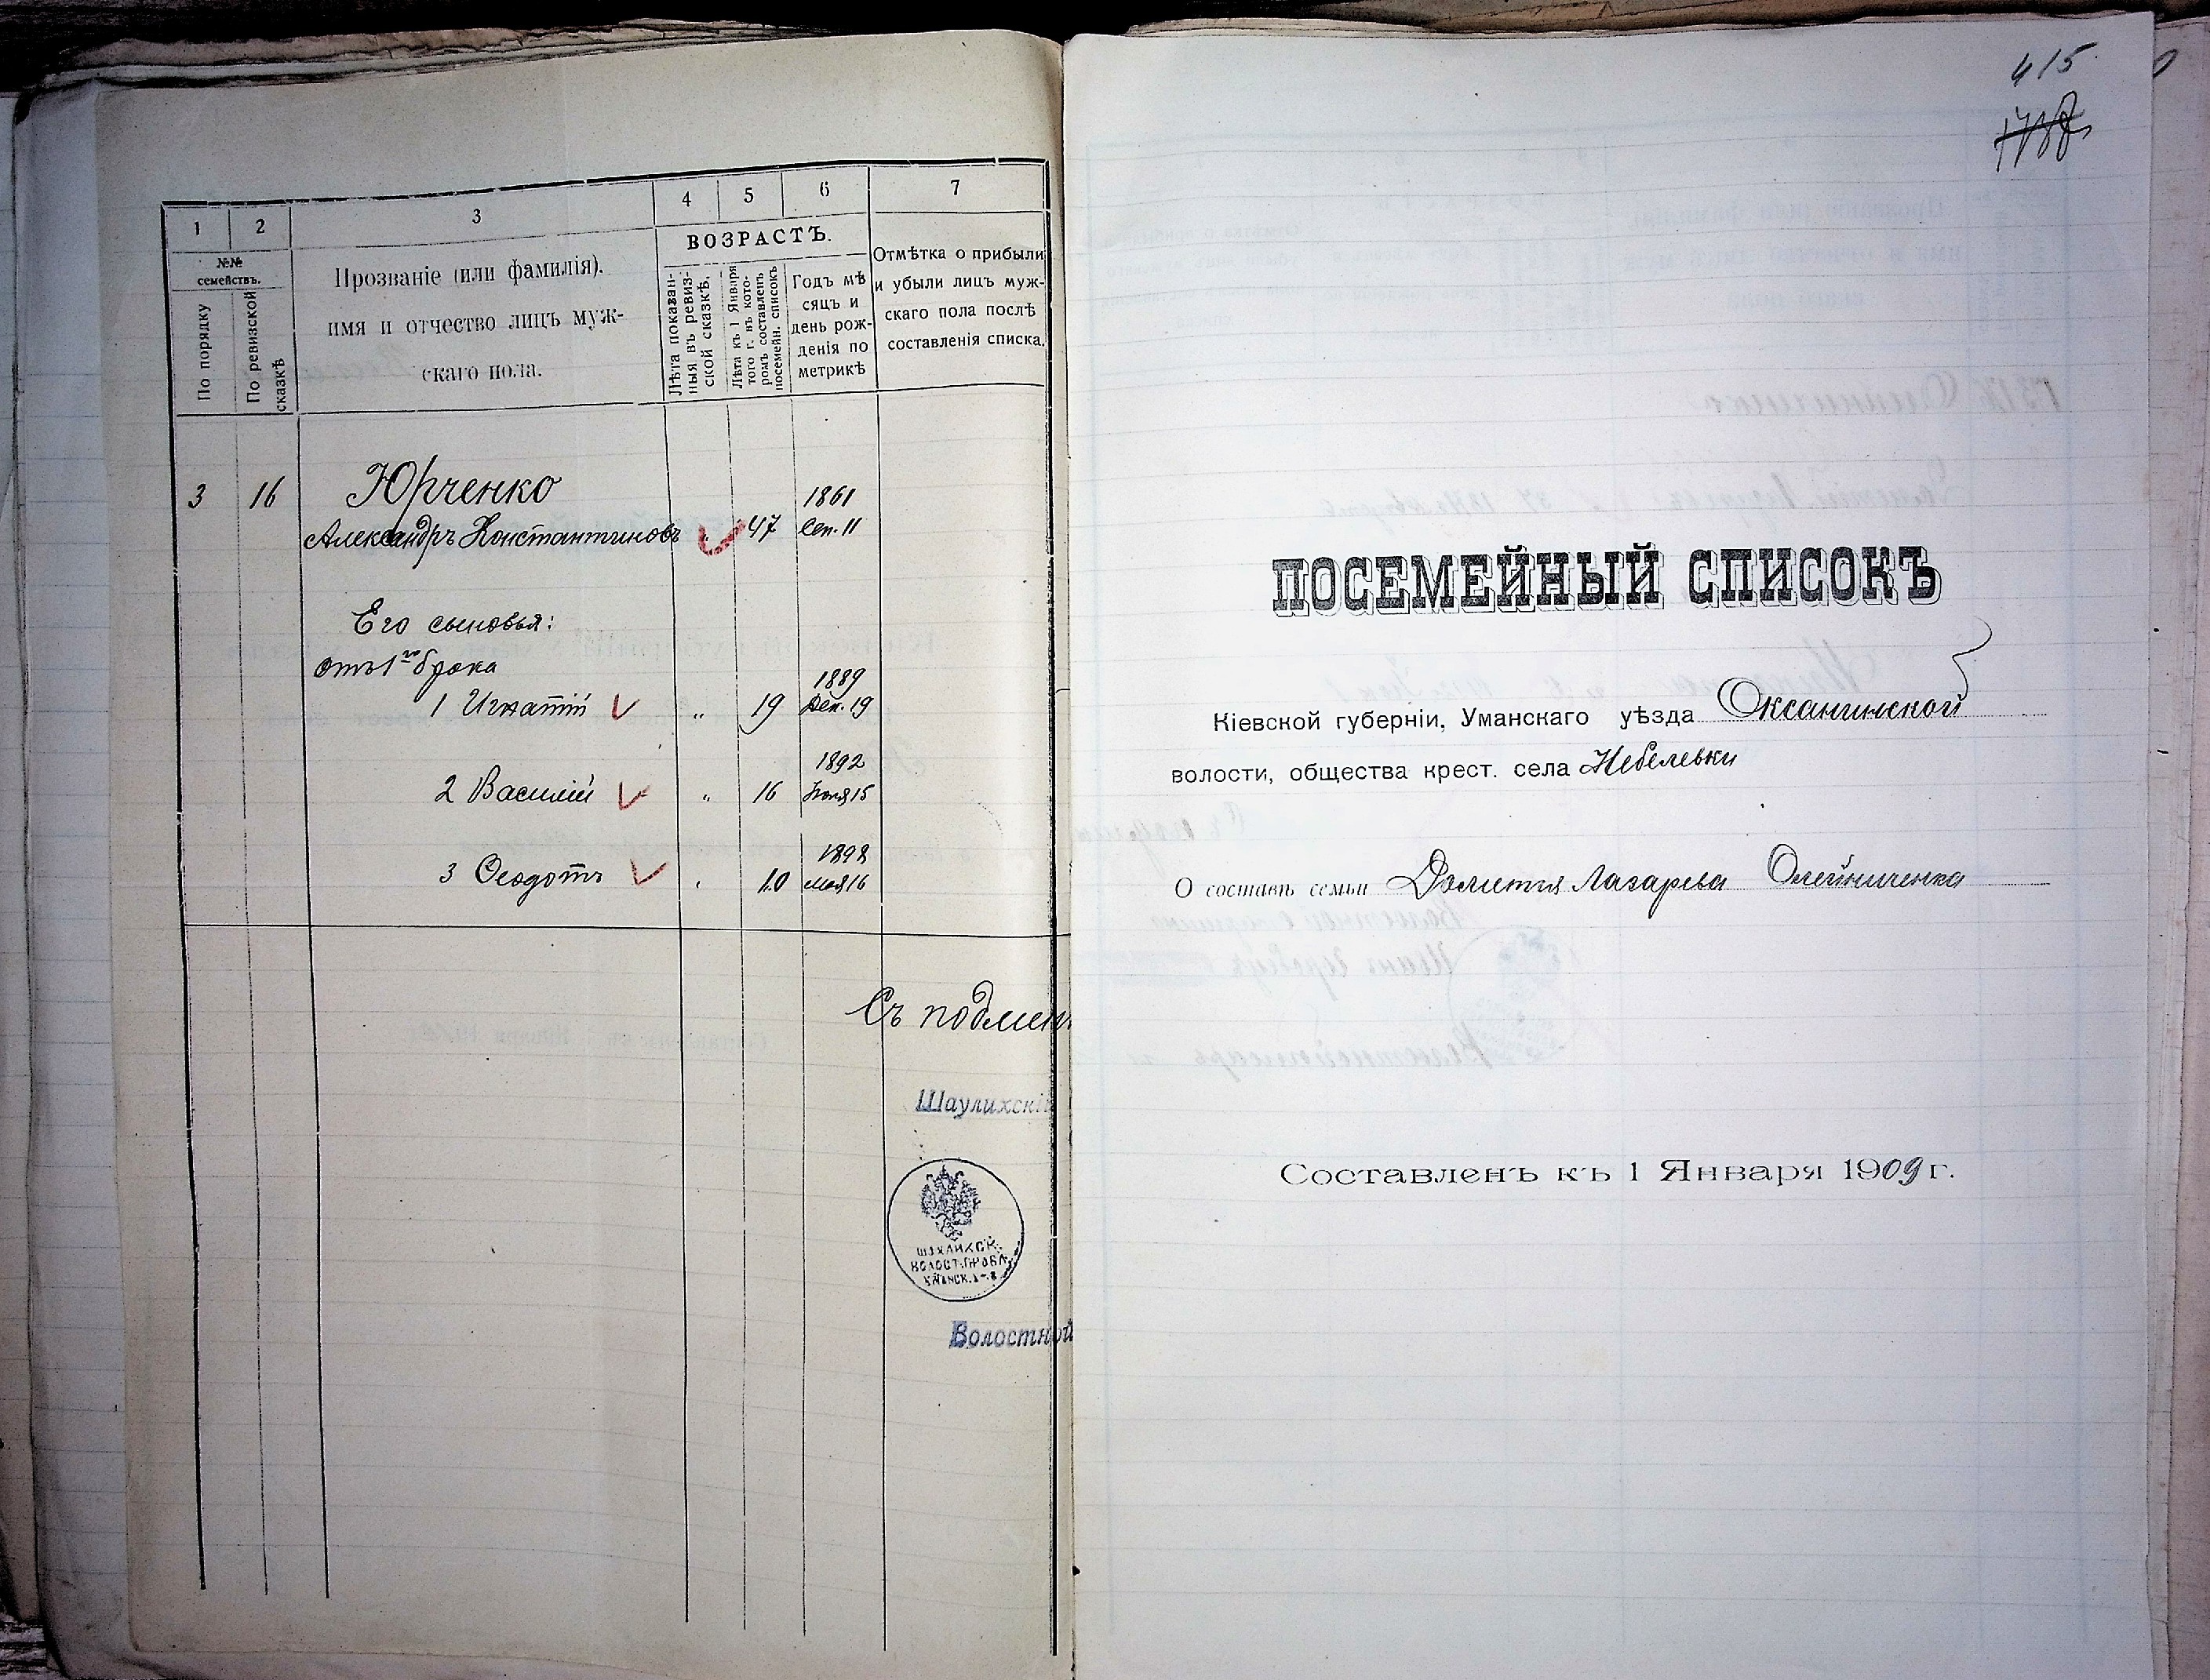 1
2
3
4
5
6
7
№№ семействъ.
По порядку
По ревизской сказкѣ
Прозваніе (или фамилія).
имя и отчество лицъ муж-
скаго пола.
ВОЗРАСТЪ.
Лѣта показан-
ныя въ ревиз-
ской сказкѣ.
Лѣта къ 1 Января
того г. въ кото-
ромъ составленъ
посемейн. списокъ
Годъ мѣ
сяцъ и
день рож-
денія по
метрикѣ
Отмѣтка о прибыли
и убыли лицъ муж-
скаго пола послѣ
составленія списка.
3 16 Юрченко 1861
Александръ Константиновъ 47 Сен. 11
Его сыновья:
отъ 1го брака
1889
1 Игнатій " 19 Дек. 19
1892
2 Василій " 16 Іюня 15
1898
3 Ѳеодотъ 10 Мая 16
Съ подлин
Шаулихскій
ВОЛОСТ. ПРАВЛ.
Волостной
415
ПОСЕМЕЙНЫЙ СПИСОКЪ
Кіевской губерніи, Уманскаго уѣзда Оксанинской
волости, общества крест. села Небелевки
О составѣ семьи Лазарева Олейниченка
Составленъ къ 1 Января 1909 г.